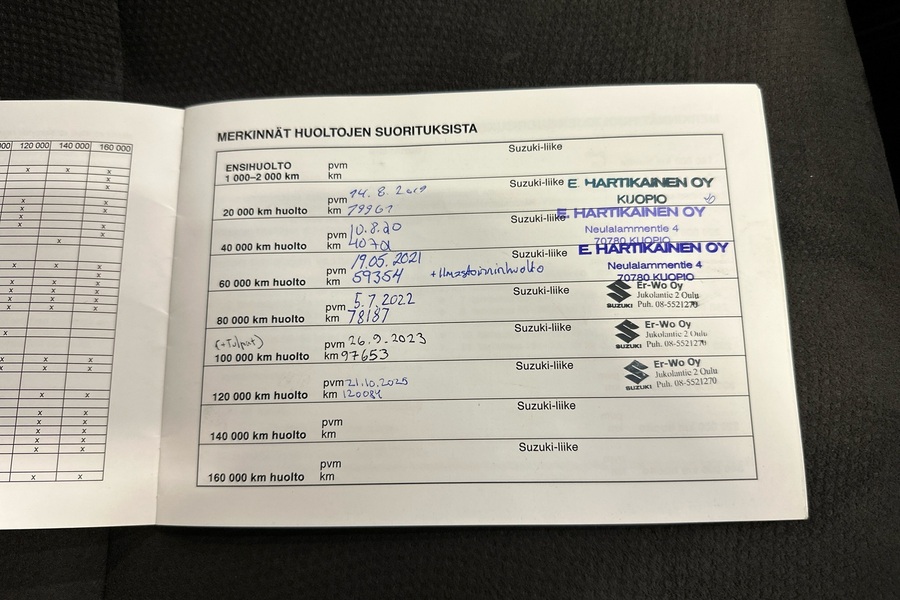 000 120 000 140 000 160 000
MERKINNÄT HUOLTOJEN SUORITUKSISTA
ENSIHUOLTO
1 000–2 000 km
pvm
km
Suzuki-liike
20 000 km huolto
pvm 14.8.2019
km
Suzuki-liike
E. HARTIKAINEN OY
KUOPIO
40 000 km huolto
pvm 10.8.20
km
Suzuki-liike
E. HARTIKAINEN OY
Neulalammentie 4
70780 KUOPIO
60 000 km huolto
pvm 19.05.2021
km 59354 + Ilmastoinninhuolto
Suzuki-liike
E. HARTIKAINEN OY
Neulalammentie 4
70780 KUOPIO
80 000 km huolto
pvm 5.7.2022
km 78187
Suzuki-liike
SUZUKI
Er-Wo Oy
Jukolantie 2 Oulu
Puh. 08-5521270
(+Tulpat)
100 000 km huolto
pvm 26.9.2023
km 97653
Suzuki-liike
SUZUKI
Er-Wo Oy
Jukolantie 2 Oulu
Puh. 08-5521270
120 000 km huolto
pvm 21.10.2025
km 120084
Suzuki-liike
SUZUKI
Er-Wo Oy
Jukolantie 2 Oulu
Puh. 08-5521270
140 000 km huolto
pvm
km
Suzuki-liike
160 000 km huolto
pvm
km
Suzuki-liike